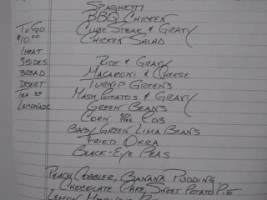 Spaghetti
BBQ Chicken
Cube Steak & Gravy
Chicken Salad
To Go
$10.00
1 Meat
Sides
Bread
Desert
Tea or
Lemonade
Rice & Gravy
Macaroni & Cheese
Turnip Greens
Mash Potatos & Gravy
Green Beans
Corn
Baby Green Lima Beans
Fried Okra
Black-Eye Peas
Peach Cobbler, Banana Pudding
Chocolate Cake, Sweet Potato Pie
Lemon